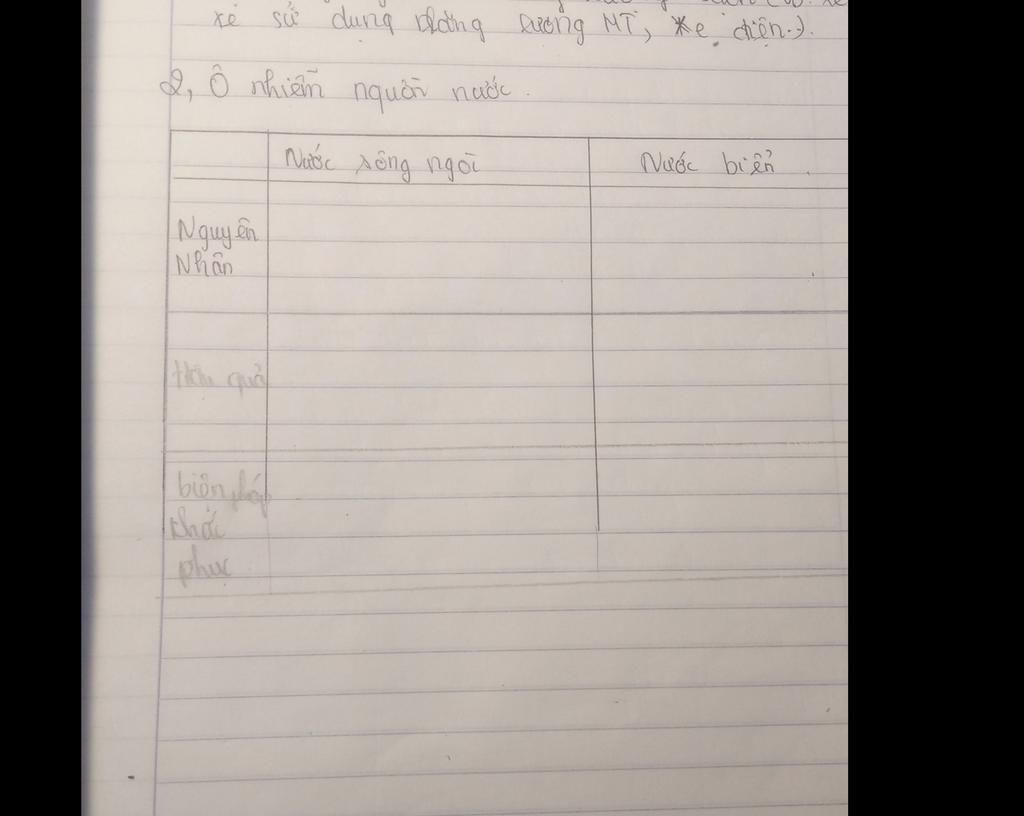 xe sử dụng năng lượng MT, xe điện.).
2, Ô nhiễm nguồn nước.
Nước sông ngòi Nước biển.
Nguyên
Nhân
Hậu quả
biện pháp
khắc
phục